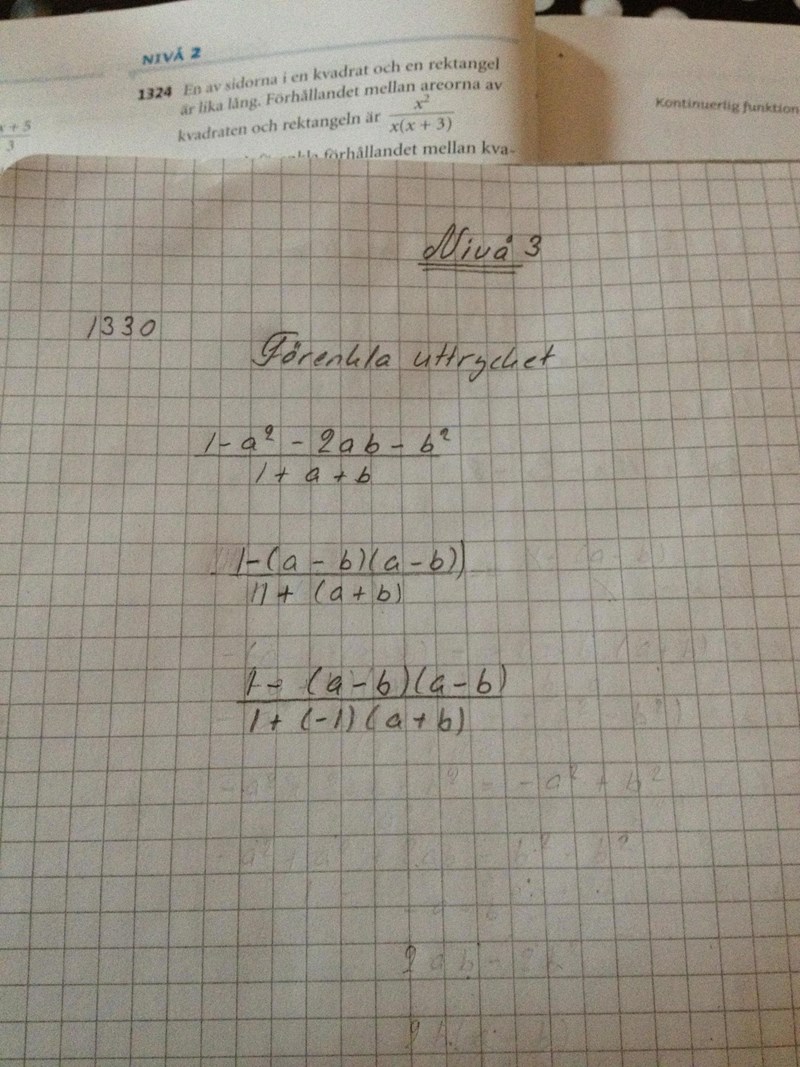 NIVÅ 2
1324 En av sidorna i en kvadrat och en rektangel
är lika lång. Förhållandet mellan areorna av
kvadraten och rektangeln är x²/x(x + 3)
förhållandet mellan kva-
x + 5
3
Kontinuerlig funktion
Nivå 3
1330
Förenkla uttrycket
1 - a² - 2ab - b²
1 + a + b
1-(a - b)(a - b))
11 + (a + b)
1 - (a - b)(a - b)
1 + (-1)(a + b)